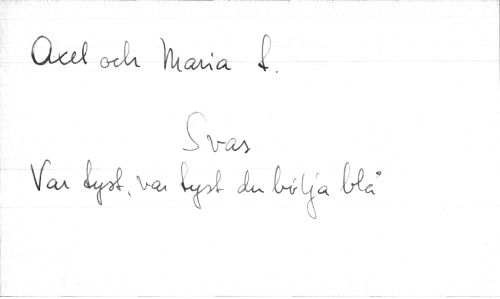 Axel och Maria f.
Svar
Var tyst, var tyst du bölja blå